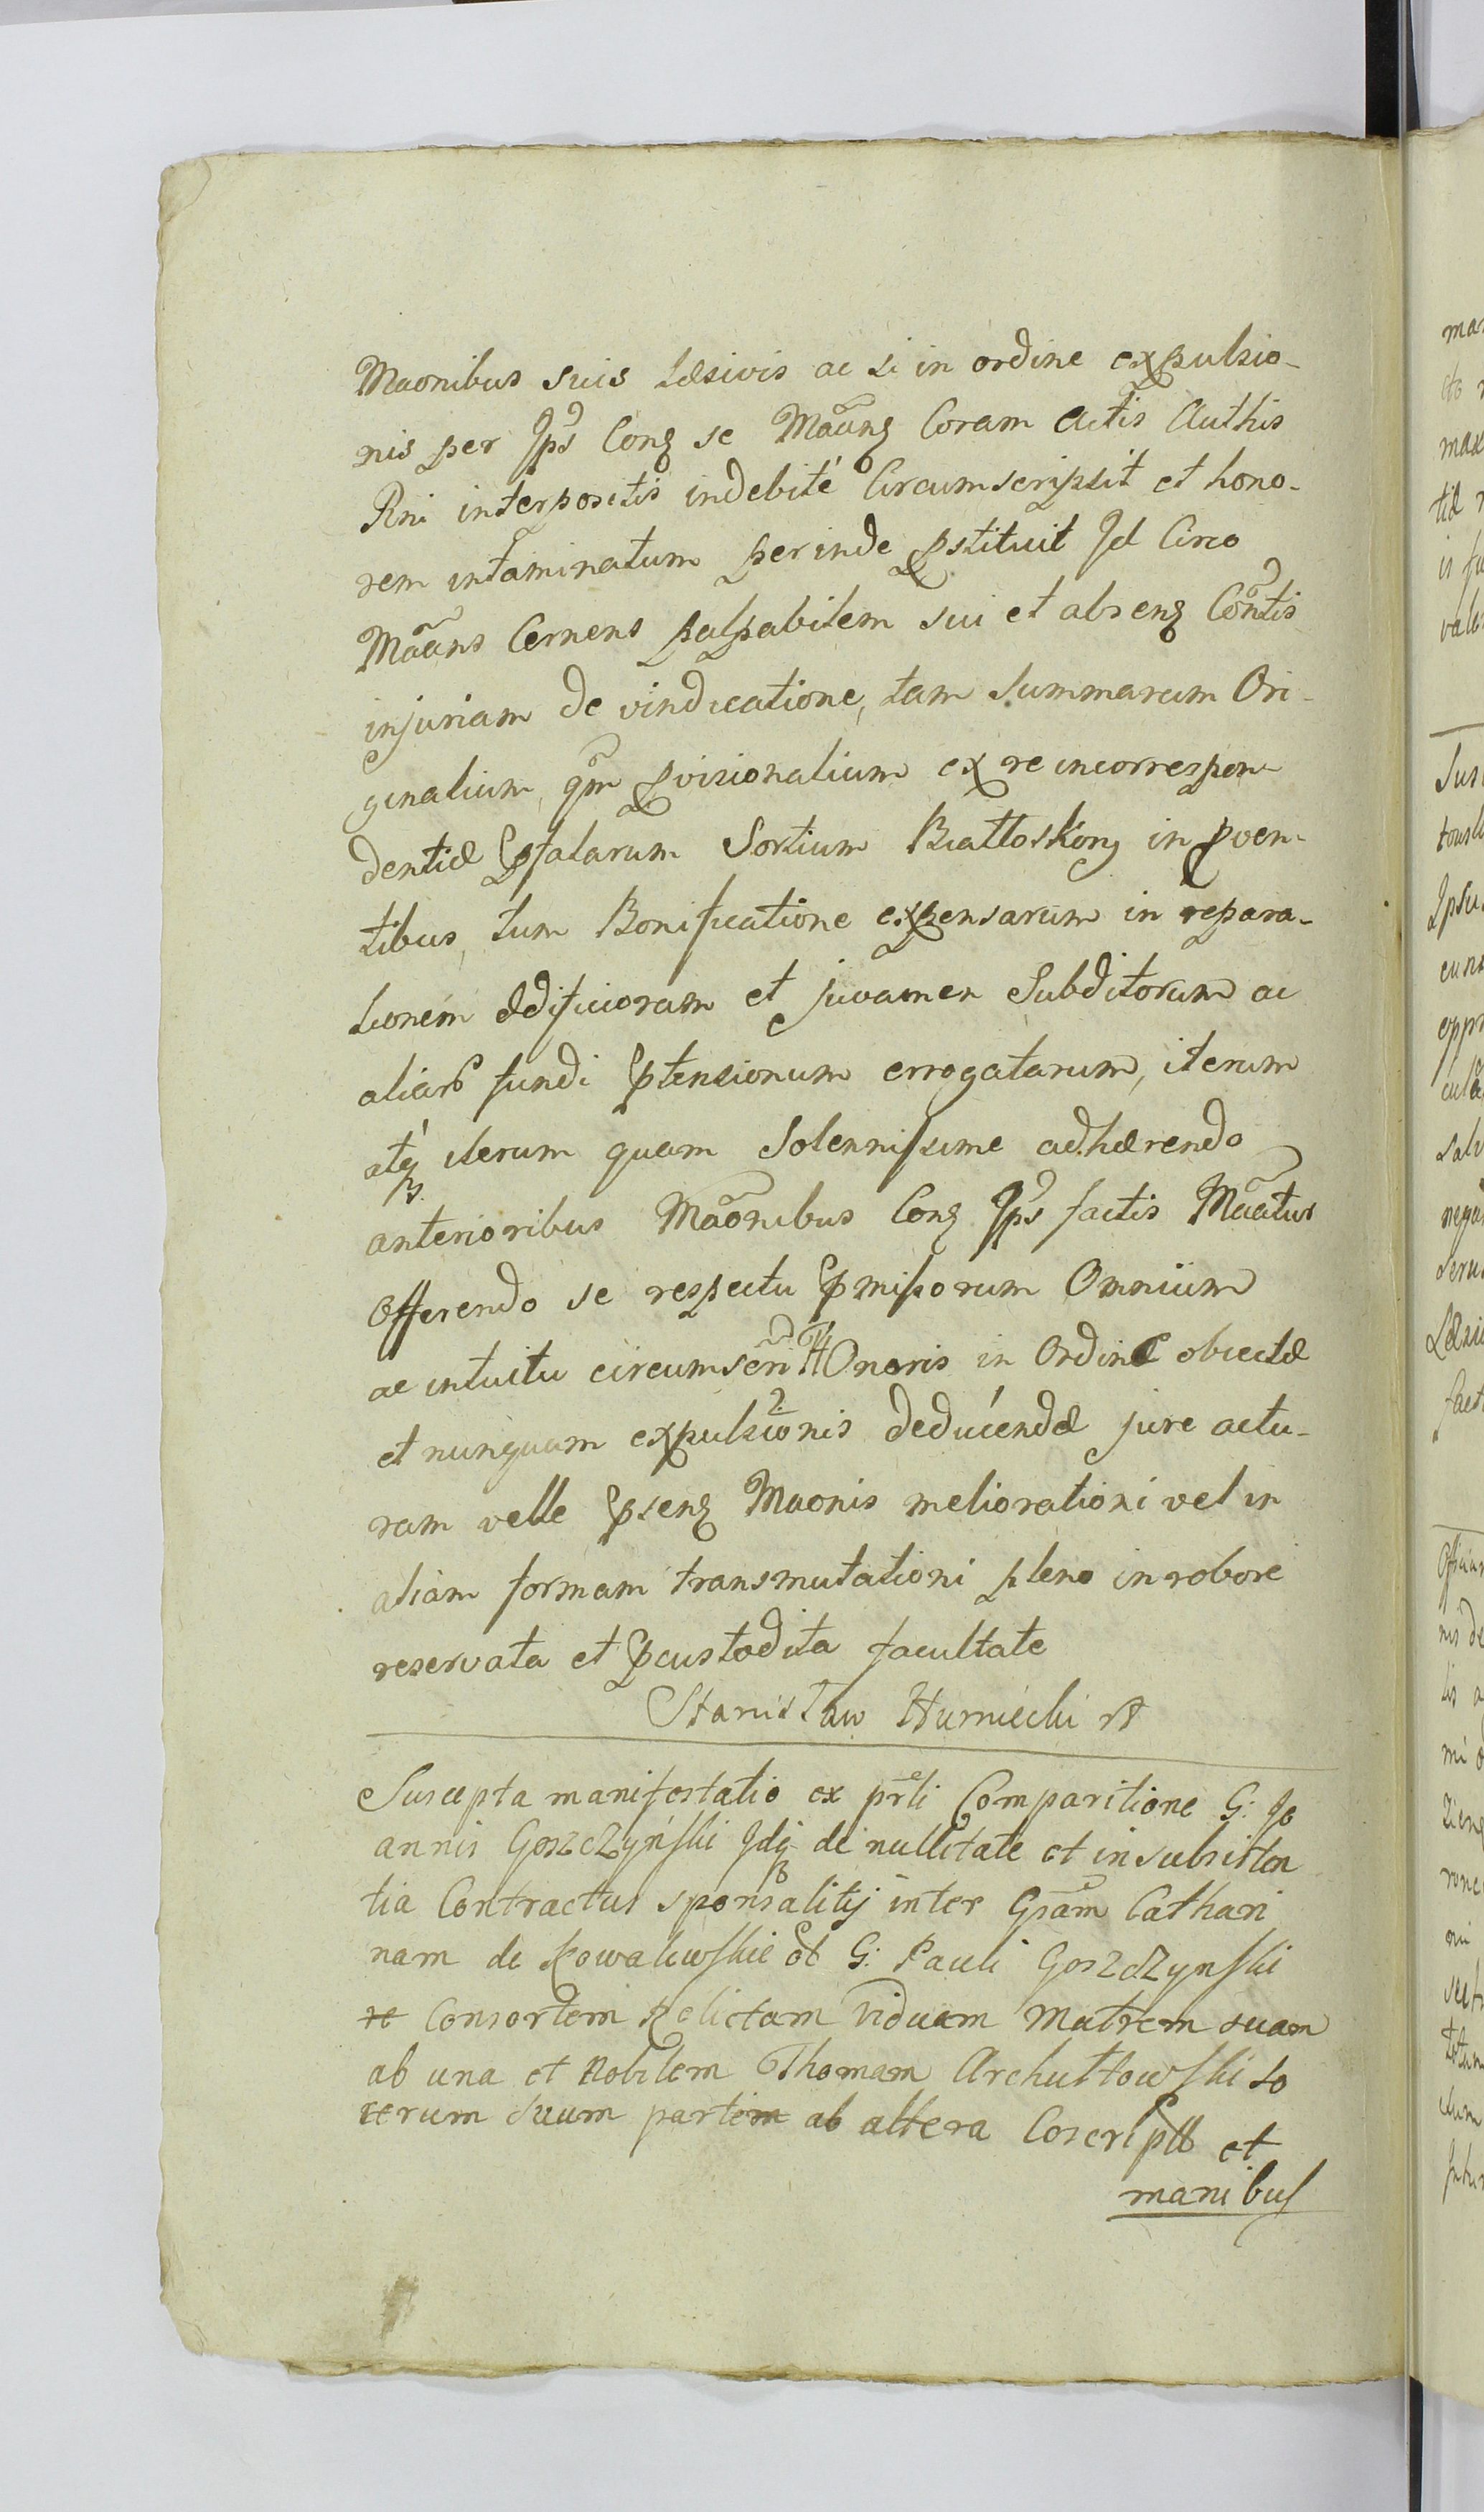 Maonibus suis Læsivis ac si in ordine expulsio-
nis per Ips Conq se Maanq Coram Actis Authis
Rni interpositis indebité Circumscripsit et hono-
rem intaminatum perinde pstituit Id Circo
Maans Cernens palpabilem sui et absenq Contis
injuriam de vindicatione, tam Summarum Ori-
ginalium, qm pvisionalium ex re incorrespon-
dentiæ pfatarum Sortium Białłoskich in pven-
tibus, tum Bonificatione expensarum in repara-
tionem ædificiorum et juvamen Subditorum ac
aliar fundi ptensionum errogatarum, iterum
atq iterum quam Solennissime adhærendo
anterioribus Maonibus Conq Ips factis Maatur
Offerendo se respectu pmissorum Omnium
ac intuitu circumscrni Honoris in Ordine obiectæ
et nunquam expulsionis deducendæ jure actu-
ram velle psenq Maonis meliorationi vel in
aliam formam transmutationi pleno in robore
reservata et pcustodita facultate
Stanisław Humiecki
Suscepta manifestatio ex prli Comparitione G: Jo
annis Goszczyński Idq de nullitate et insubsisten
tia Contractus sponsalitij inter Gsam Cathari
nam de Kowalewskie ol G: Pauli Goszczynski
Consortem Relictam Viduam Matrem suam
ab una et Nobilem Thomam Archutowski so
cerum suum partem ab altera Coscript et
manibus
mar
max
tiæ
valo
Ipsu